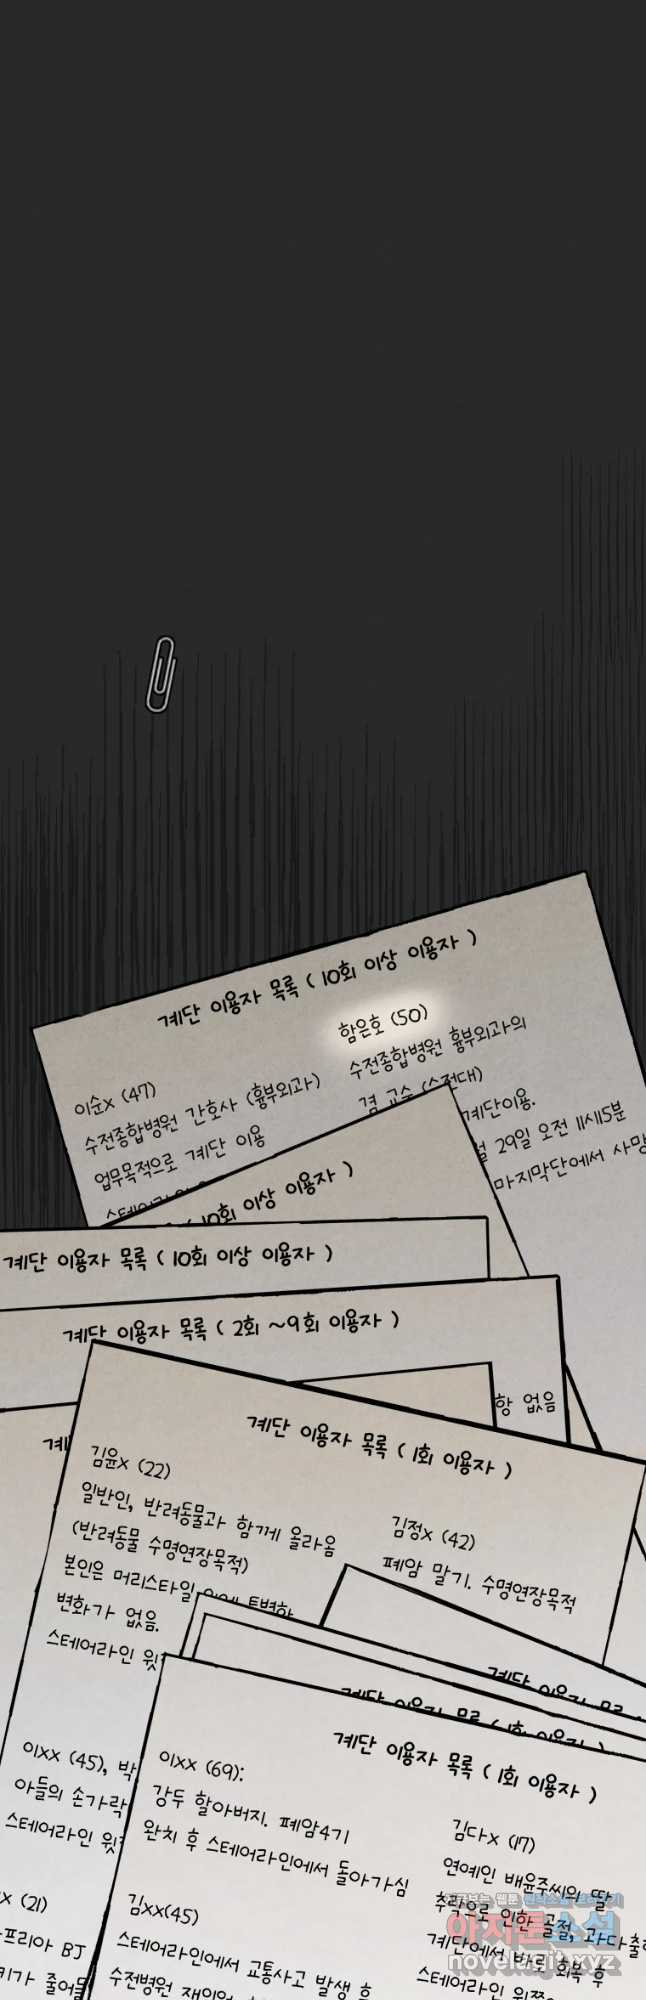 계단 이용자 목록 ( 10회 이상 이용자 )
함은호 (50)
수전종합병원 흉부외과의
겸 교수 (수전대)
계단이용.
29일 오전 11시15분
마지막단에서 사망
이순x (47)
수전종합병원 간호사 (흉부외과)
업무목적으로 계단 이용
( 10회 이상 이용자 )
계단 이용자 목록 ( 10회 이상 이용자 )
계단 이용자 목록 ( 2회 ~9회 이용자 )
없음
계단 이용자 목록 ( 1회 이용자 )
김윤x (22)
일반인, 반려동물과 함께 올라옴
(반려동물 수명연장목적)
본인은 머리스타일
변화가 없음.
스테어라인
김정x (42)
폐암 말기. 수명연장목적
계단 이용자 목록 ( 1회 이용자 )
이xx (45),
아들의
스테어라인
x (21)
BJ
계단 이용자 목록 ( 1회 이용자 )
이xx (69):
강두 할아버지. 폐암4기
완치 후 스테어라인에서 돌아가심
김xx(45)
스테어라인에서 교통사고 발생 후
수전병원
김다x (17)
연예인 배윤주씨의 딸
추락으로 인한 골절, 과다출
계단에서 바로 회복 후
스테어라인
아지툰소설
novelagit.xyz